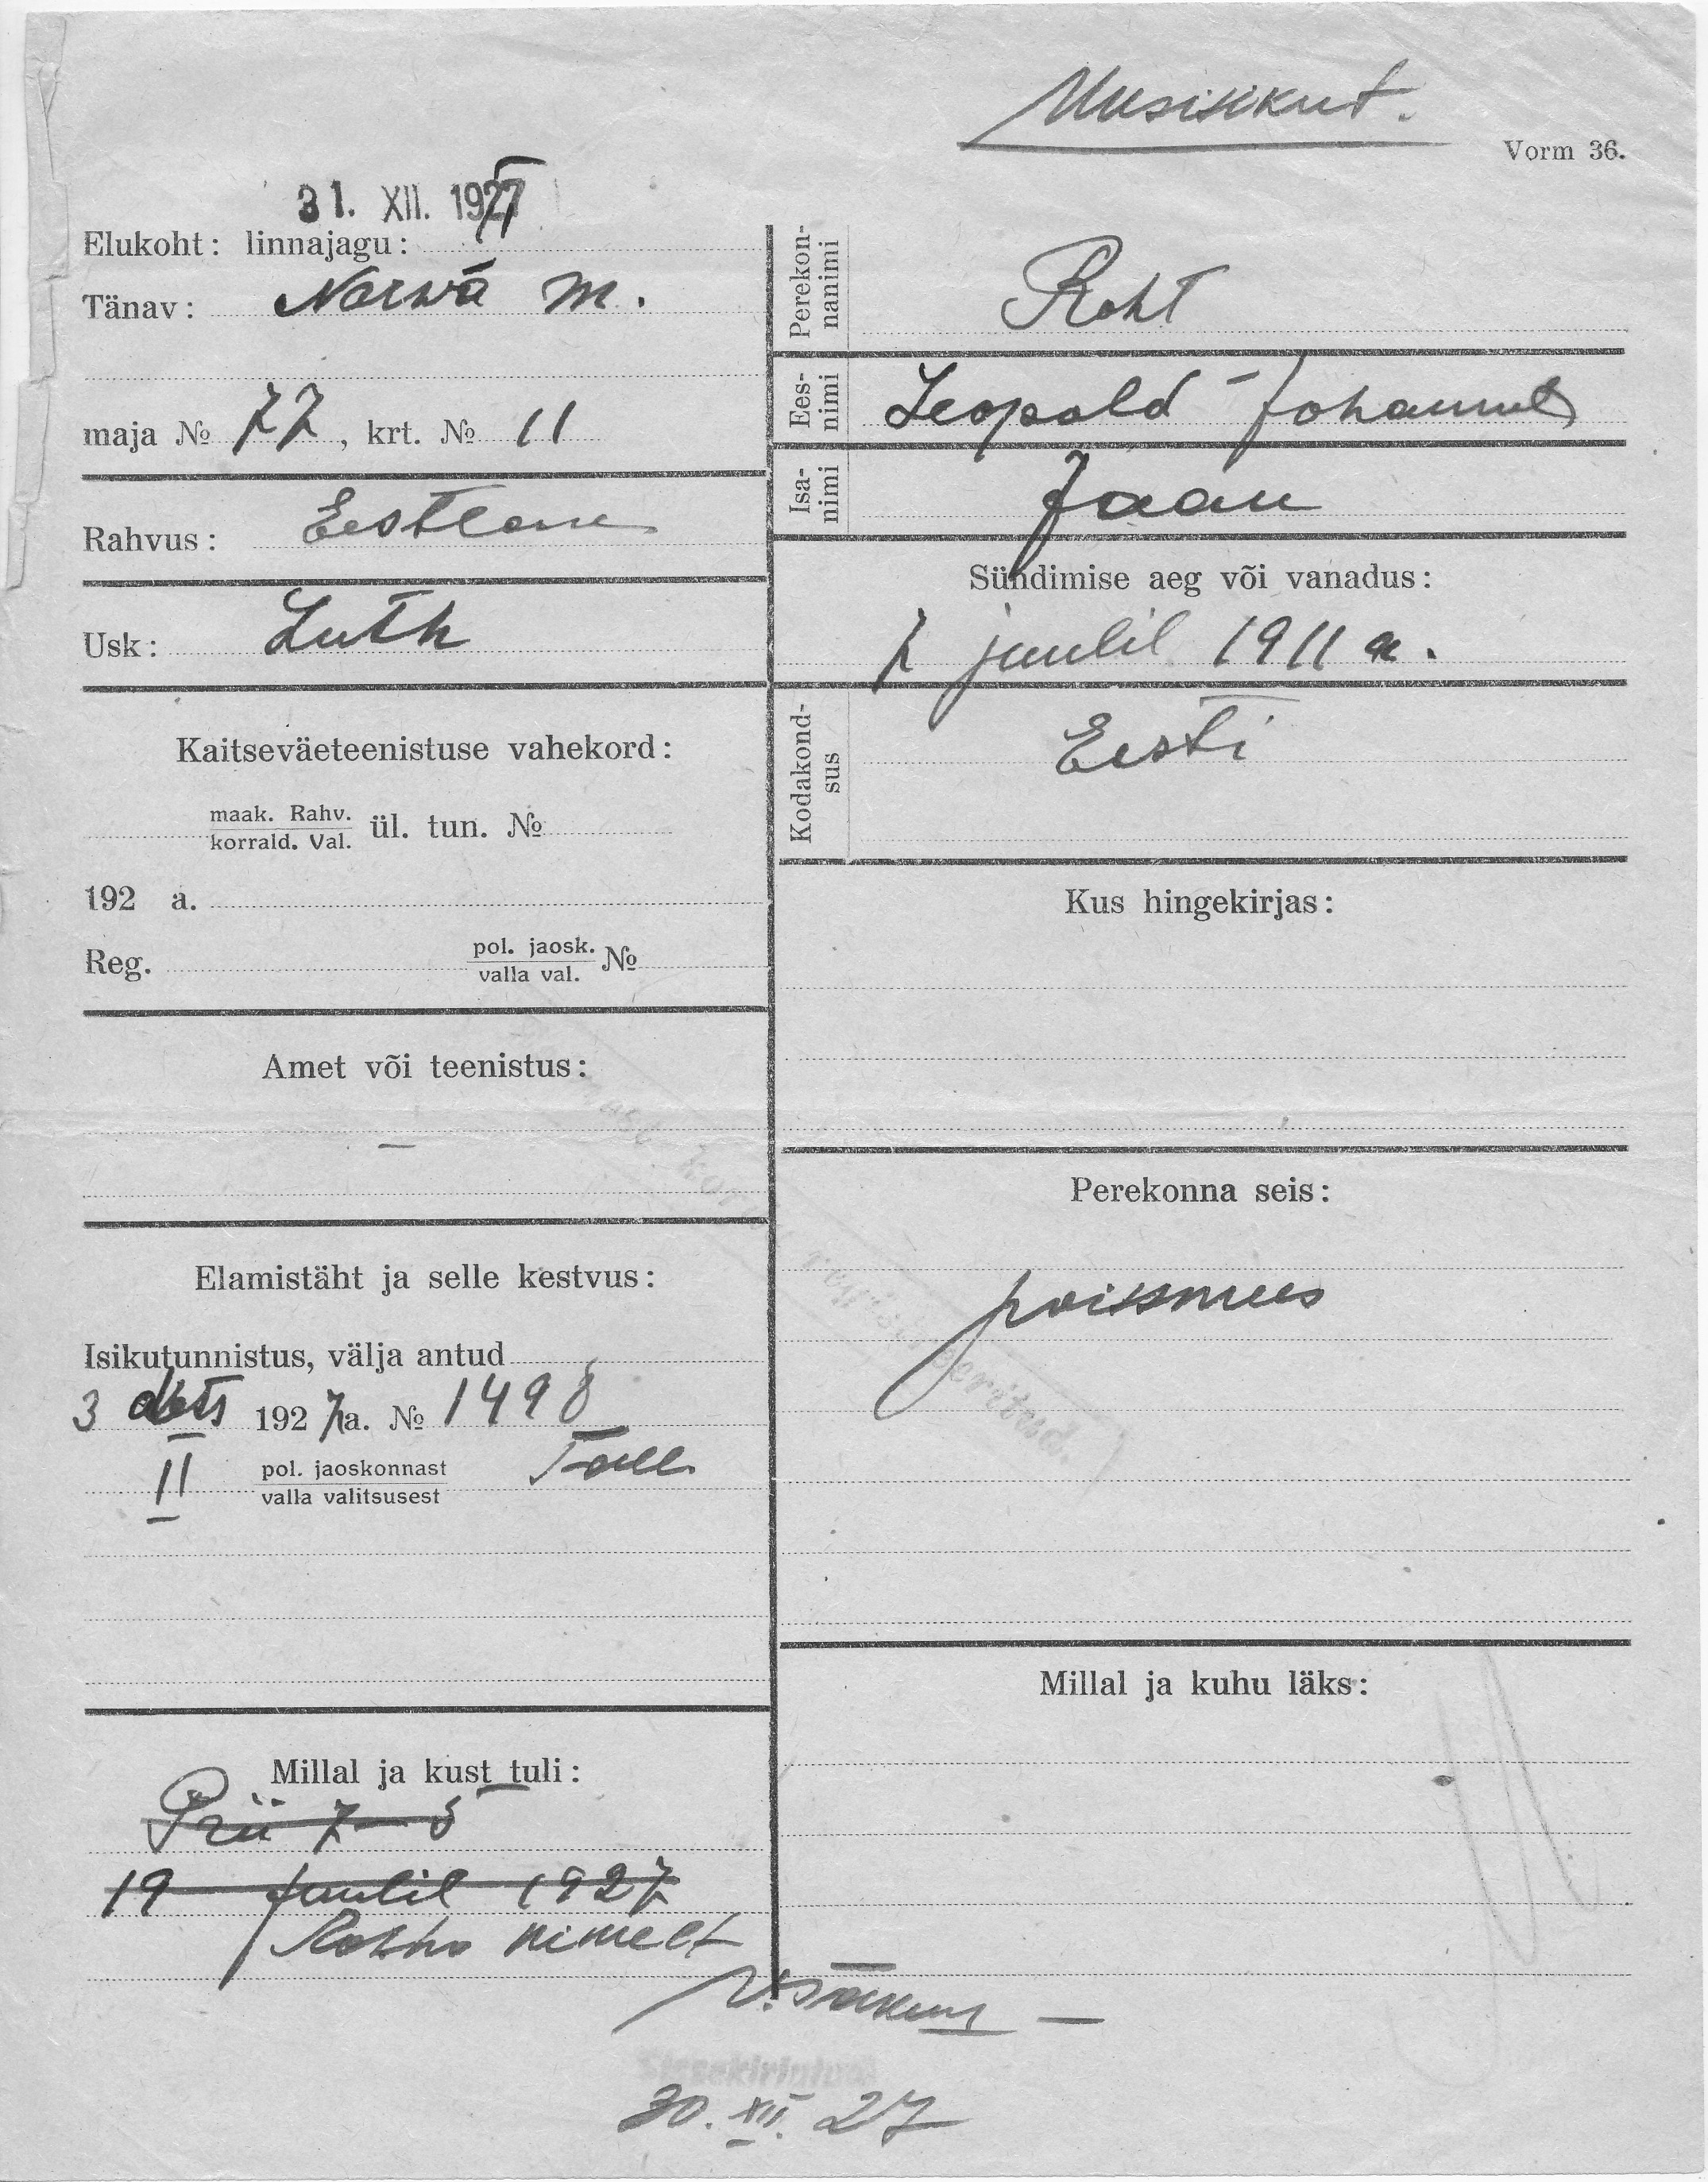 Uusisikut.
Vorm 36.
31. XII. 1927
Elukoht: linnajagu:
Tänav: Narwa m.
maja № 77, krt. № 11
Rahvus: Eestlane
Usk: Luth
Kaitseväeteenistuse vahekord:
maak. Rahv.
korrald. Val. ül. tun. №
192 a.
Reg. pol. jaosk.
valla val. №
Amet või teenistus:
—
Elamistäht ja selle kestvus:
Isikutunnistus, välja antud
3 dets 1927 a. № 1498
II pol. jaoskonnast Tall.
valla valitsusest
Millal ja kust tuli:
Prii 7-5
19 juulil 1927
nimelt
Perekonnanimi Roht
Eesnimi Leopold-Johannes
Isanimi Jaan
Sündimise aeg või vanadus:
7 juulil 1911 a.
Kodakondsus Eesti
Kus hingekirjas:
Perekonna seis:
poissmees
Millal ja kuhu läks:
Sissekirjutud
30. XII. 27